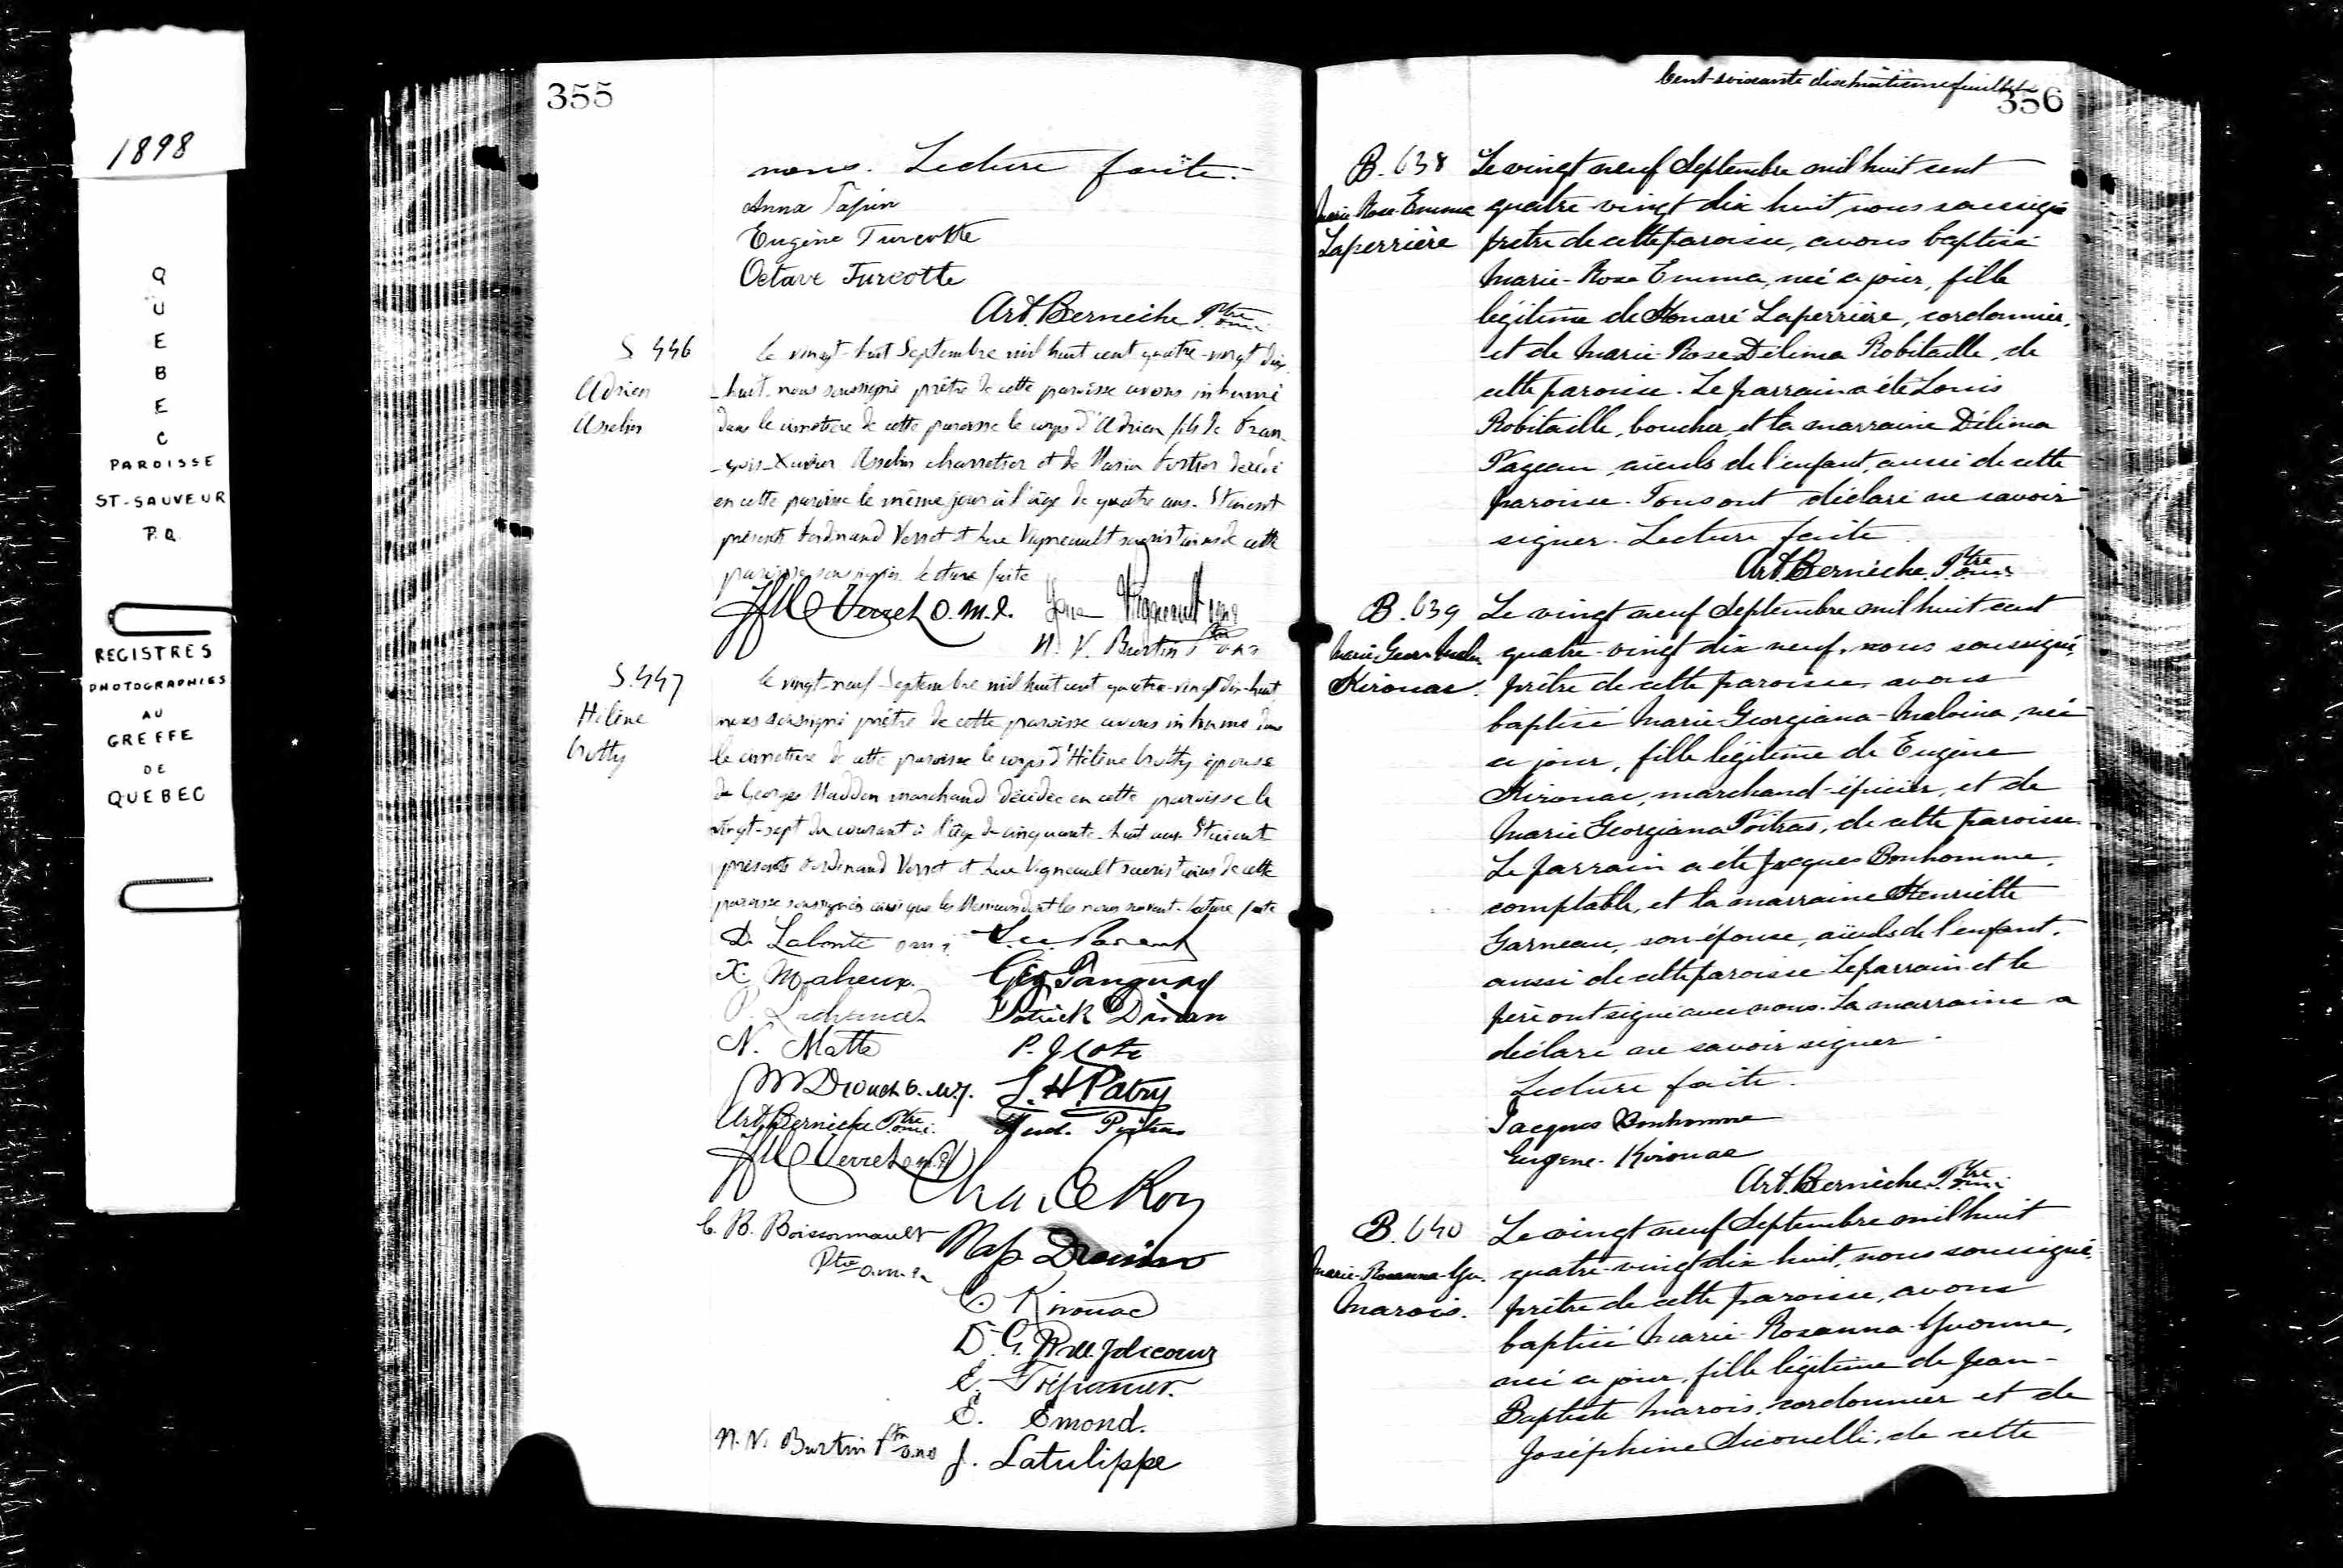 1898
QUEBEC
PAROISSE
ST-SAUVEUR
P.Q.
REGISTRES
PHOTOGRAPHIES
AU
GREFFE
DE
QUEBEC
355
nous. Lecture faite.
Anna
Eugène Turcotte
Octave Turcotte
Art. Berniche Ptre omi
S 446
Adrien
Asselin
Le vingt-huit Septembre mil huit cent quatre-vingt dix
-huit nous soussigné prêtre de cette paroisse avons inhumé
dans le cimetière de cette paroisse le corps d'Adrien fils de Fran-
-çois-Xavier Asselin charretier et de Maria Fortier décédé
en cette paroisse le même jour à l'âge de quatre ans. Etaient
présents Ferdinand Verret et Luc Vigneault sacristains de cette
paroisse soussignés lecture faite
Verret O.M.I. Vigneault
N. V. Burtin Ptre
S.447
Hélène
Le vingt-neuf Septembre mil huit cent quatre-vingt dix-huit
nous soussigné prêtre de cette paroisse avons inhumé dans
le cimetière de cette paroisse le corps d'Hélène épouse
de Georges Madden marchand décédée en cette paroisse le
vingt-sept du courant à l'âge de cinquante-huit ans. Etaient
présents Ferdinand Verret et Luc Vigneault sacristains de cette
paroisse soussignés ainsi que les Messieurs dont les noms suivent. lecture faite
D. Labonté Parent
X. Maheux Geo Tanguay
P. Lachance Patrick
N. Matte P. J. Côté
Drouet J. H. Patry
Art. Berniche Ptre omi Ferd. Poitras
Verret
Chas. Roy
C. B. Boissonnault Nap Drouin
Ptre o.m.i.
C. Kirouac
D. G. Jolicoeur
E. Trépanier.
E. Emond.
N. V. Burtin Ptre J. Latulippe
Cent-soixante dixhuitième feuillet
356
B. 638
Marie-Rose-Emma
Laperrière
Le vingt neuf Septembre mil huit cent
quatre-vingt dix huit nous soussigné
prêtre de cette paroisse, avons baptisé
Marie-Rose Emma, née ce jour, fille
légitime de Honoré Laperrière, cordonnier,
et de Marie Rose Délima Robitaille, de
cette paroisse. Le parrain a été Louis
Robitaille, boucher, et la marraine Délima
Pageau, aïeuls de l'enfant, aussi de cette
paroisse. Tous ont déclaré ne savoir
signer. Lecture faite.
Art. Berniche Ptre omi
B. 639
Kirouac.
Le vingt neuf Septembre mil huit cent
quatre-vingt dix neuf, nous soussigné,
prêtre de cette paroisse, avons
baptisé Marie-Georgiana-Malvina, née
ce jour, fille légitime de Eugène
Kirouac, marchand-épicier, et de
Marie Georgiana Poitras, de cette paroisse.
Le parrain a été Jacques Bonhomme,
comptable, et la marraine Henriette
Garneau, son épouse, aïeuls de l'enfant,
aussi de cette paroisse. Le parrain et le
père ont signé avec nous. La marraine a
déclaré ne savoir signer.
Lecture faite.
Jacques Bonhomme
Eugene Kirouac
Art. Berniche Ptre omi
B. 640
Marie-Rosanna-Yv.
Marois.
Le vingt neuf Septembre mil huit
quatre-vingt dix-huit, nous soussigné,
prêtre de cette paroisse, avons
baptisé Marie-Rosanna-Yvonne,
née ce jour, fille légitime de Jean-
Baptiste Marois, cordonnier et de
Joséphine de cette